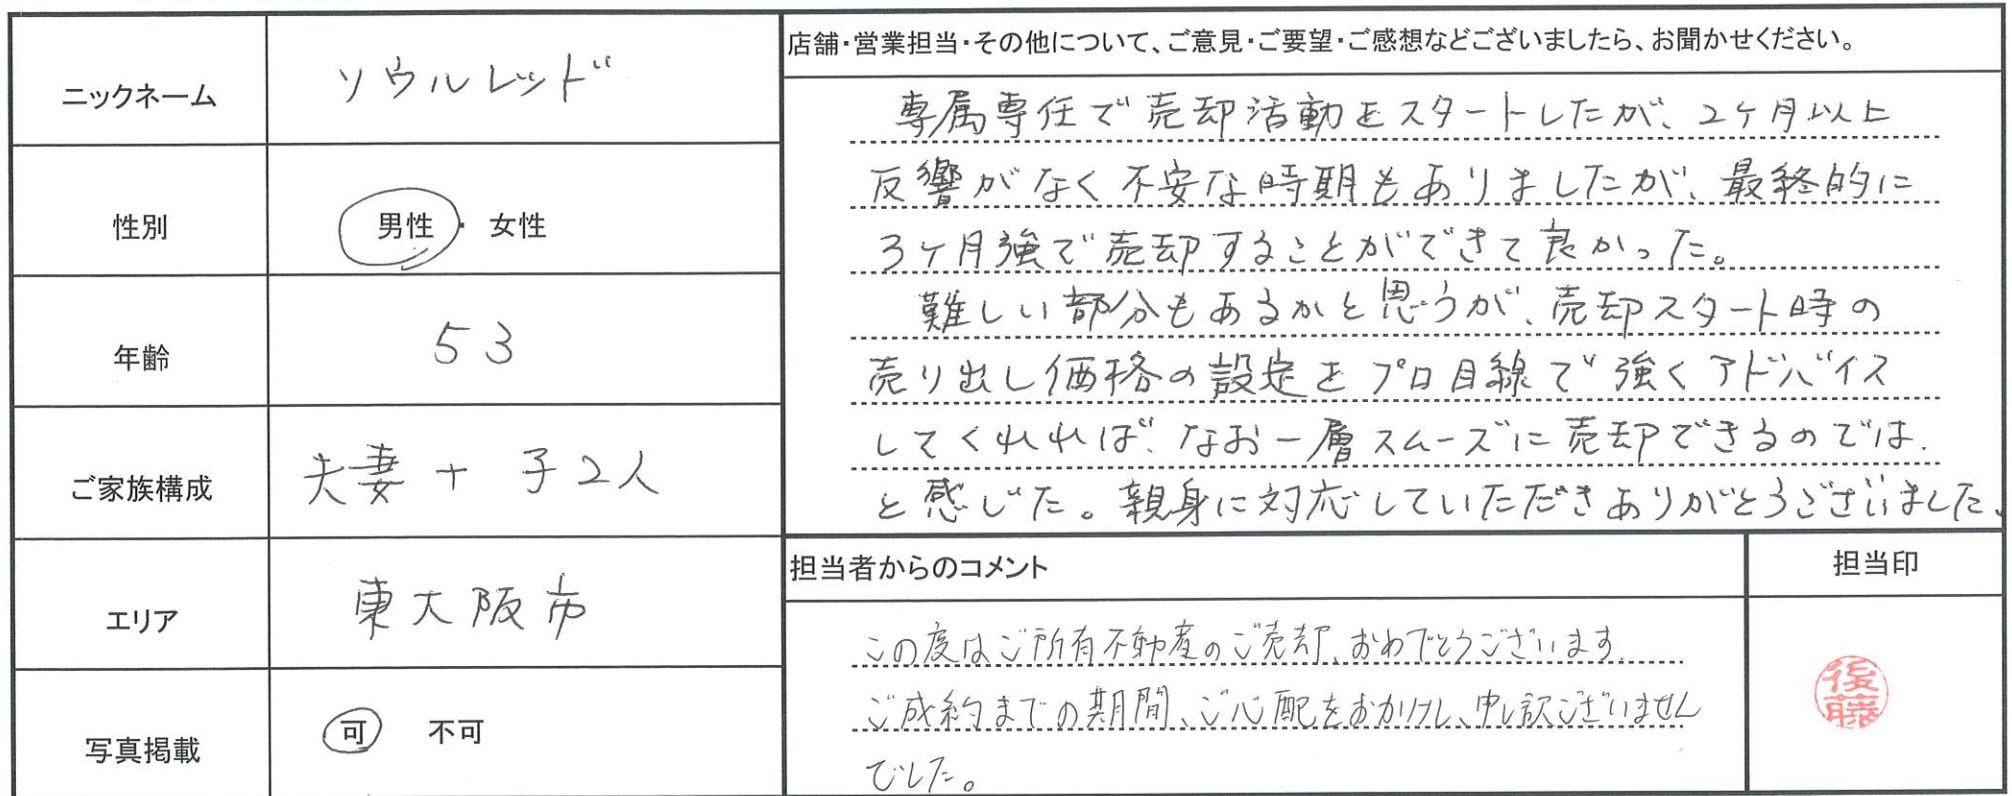 ニックネーム
ソウルレッド
性別
男性・女性
年齢
53
ご家族構成
夫妻 + 子2人
エリア
東大阪市
写真掲載
可 不可
店舗・営業担当・その他について、ご意見・ご要望・ご感想などございましたら、お聞かせください。
専属専任で売却活動をスタートしたが、2ヶ月以上
反響がなく不安な時期もありましたが、最終的に
3ヶ月強で売却することができて良かった。
難しい部分もあるかと思うが、売却スタート時の
売り出し価格の設定をプロ目線で強くアドバイス
してくれれば、なお一層スムーズに売却できるのでは、
と感じた。親身に対応していただきありがとうございました。
担当者からのコメント
この度はご所有不動産のご売却、おめでとうございます。
ご成約までの期間、ご心配をおかけし、申し訳ございません
でした。
担当印
後藤